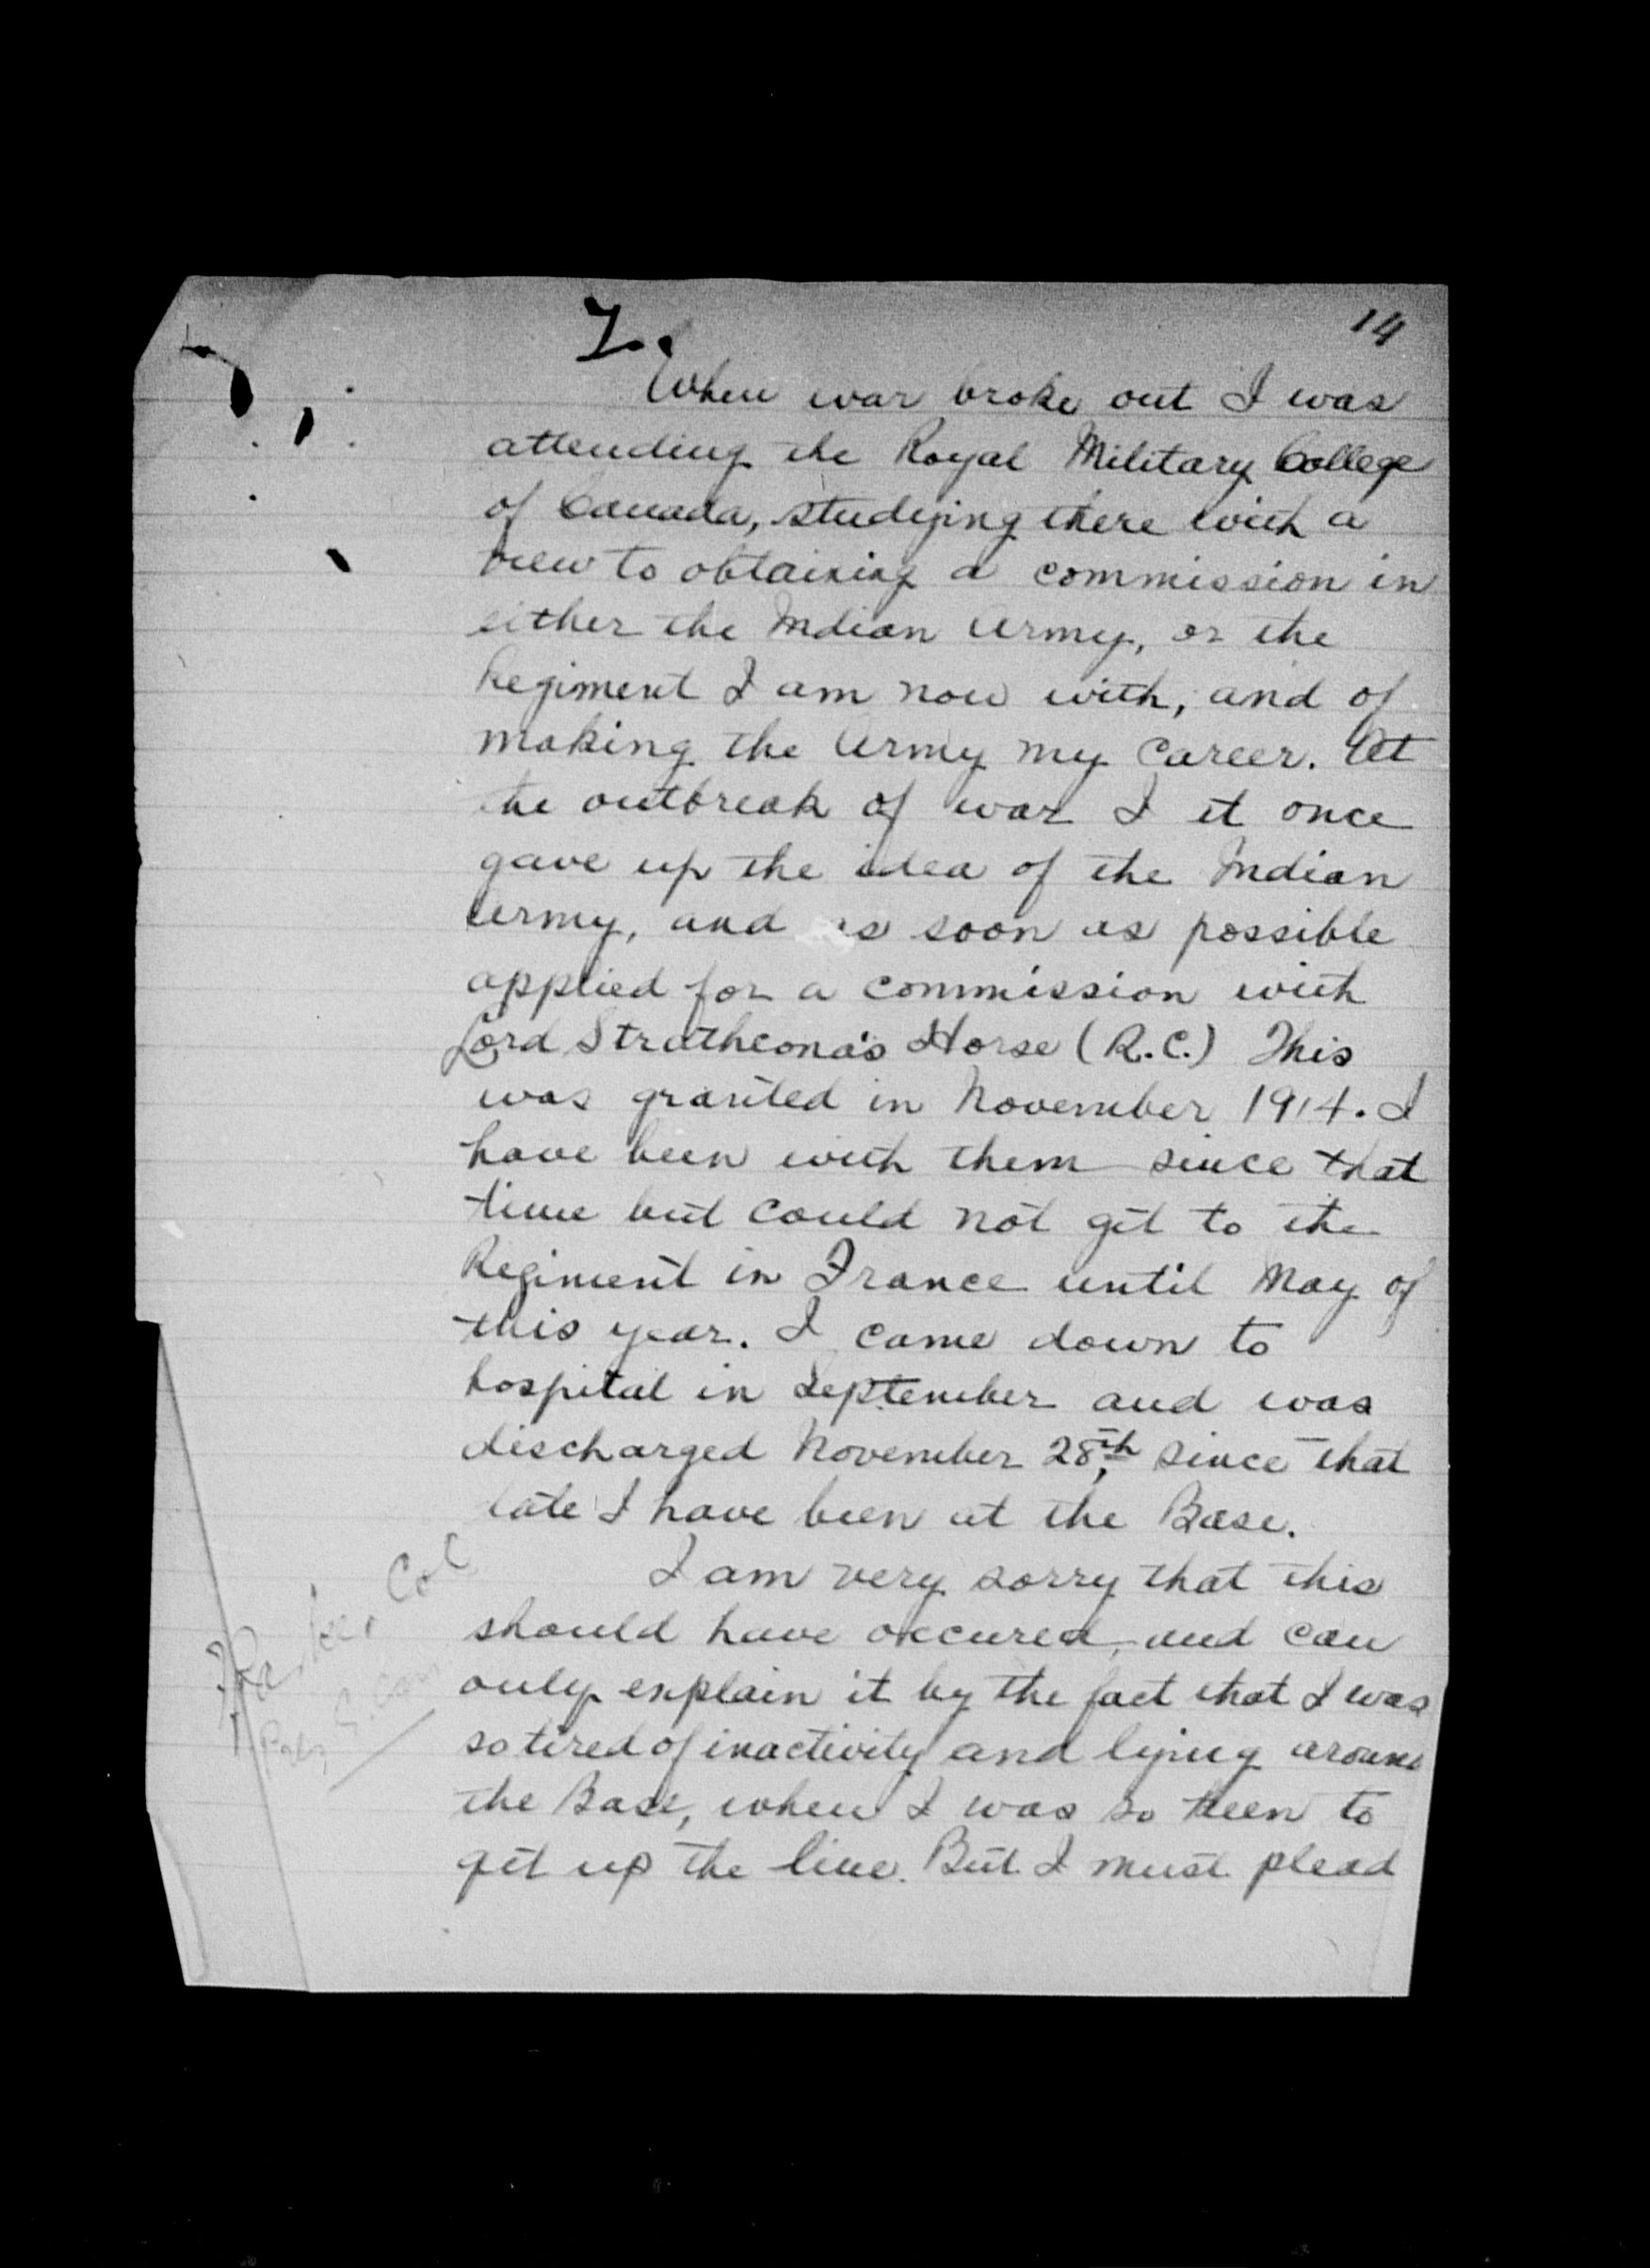 14
When war broke out I was
attending the Royal Military College
of Canada, studying there with a
view to obtaining a commission in
either the Indian Army, or the
Regiment I am now with, and of
making the Army my career. At
the outbreak of war I at once
gave up the idea of the Indian
Army, and as soon as possible
applied for a commission with
Lord Strathcona's Horse (R.C.) This
was granted in November 1914. I
have been with them since that
time but could not get to the
Regiment in France until May of
this year. I came down to
hospital in September and was
discharged November 28th, since that
date I have been at the Base.
I am very sorry that this
should have occured, and can
only explain it by the fact that I was
so tired of inactivity and lying around
the Base, when I was so keen to
get up the line. But I must plead
Col